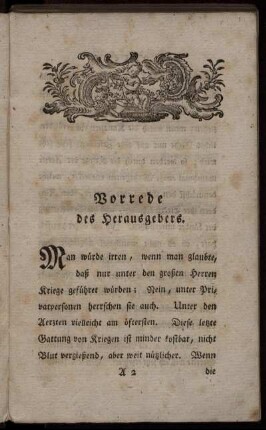 Vorrede
des Herausgebers.
Man würde irren, wenn man glaubte,
daß nur unter den großen Herren
Kriege geführet würden; Nein, unter Pri-
vatpersonen herrschen sie auch. Unter den
Aerzten vielleicht am öftersten. Diese letzte
Gattung von Kriegen ist minder kostbar, nicht
Blut vergießend, aber weit nützlicher. Wenn
A 2 die